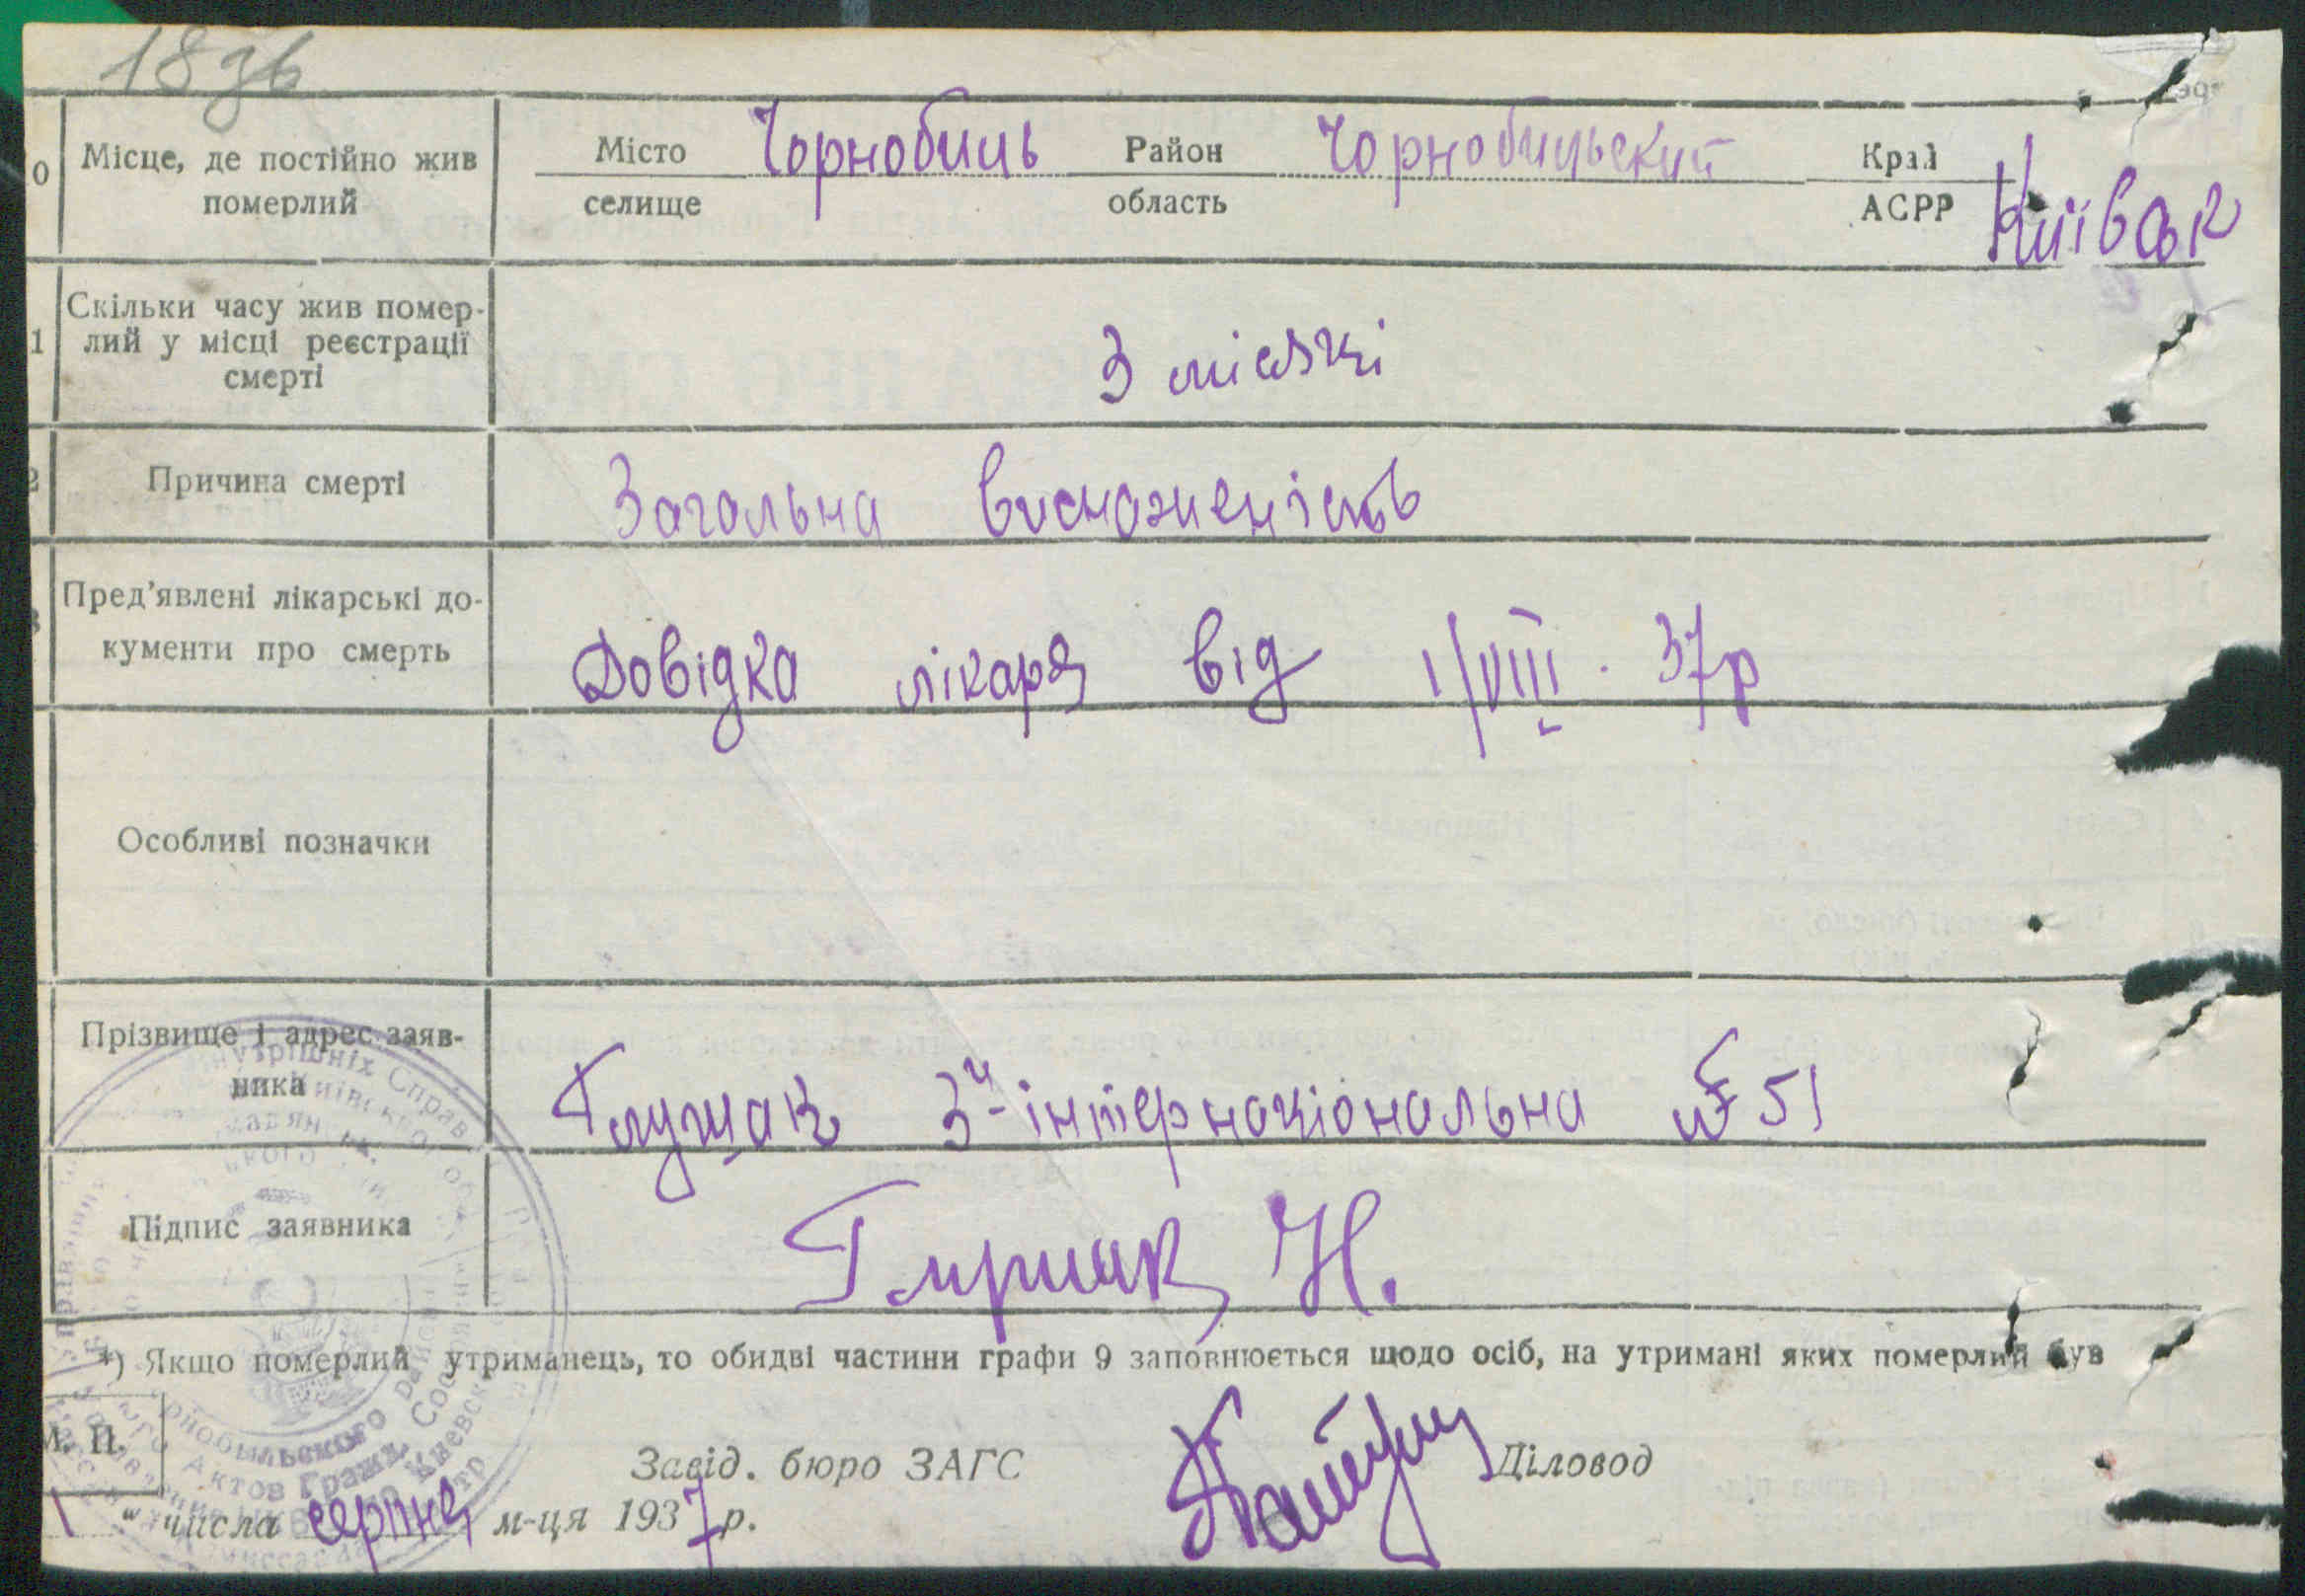 18 зв
0 Місце, де постійно жив
померлий
Місто Чорнобиль Район Чорнобильский Край
селище область АСРР Київськ
1 Скільки часу жив помер-
лий у місці реєстрації
смерті
3 місяці
2 Причина смерті Загальна висноженість
3 Пред'явлені лікарські до-
кументи про смерть
Довідка лікаря від 1/VIII. 37р
Особливі позначки
Прізвище і адрес заяв-
ника
3й інтернаціональна № 51
Підпис заявника Н.
*) Якщо померлий утриманець, то обидві частини графи 9 заповнюється щодо осіб, на утримані яких померлий був
М. П.
Завід. бюро ЗАГС Діловод
1 " числа серпня м-ця 1937 р.